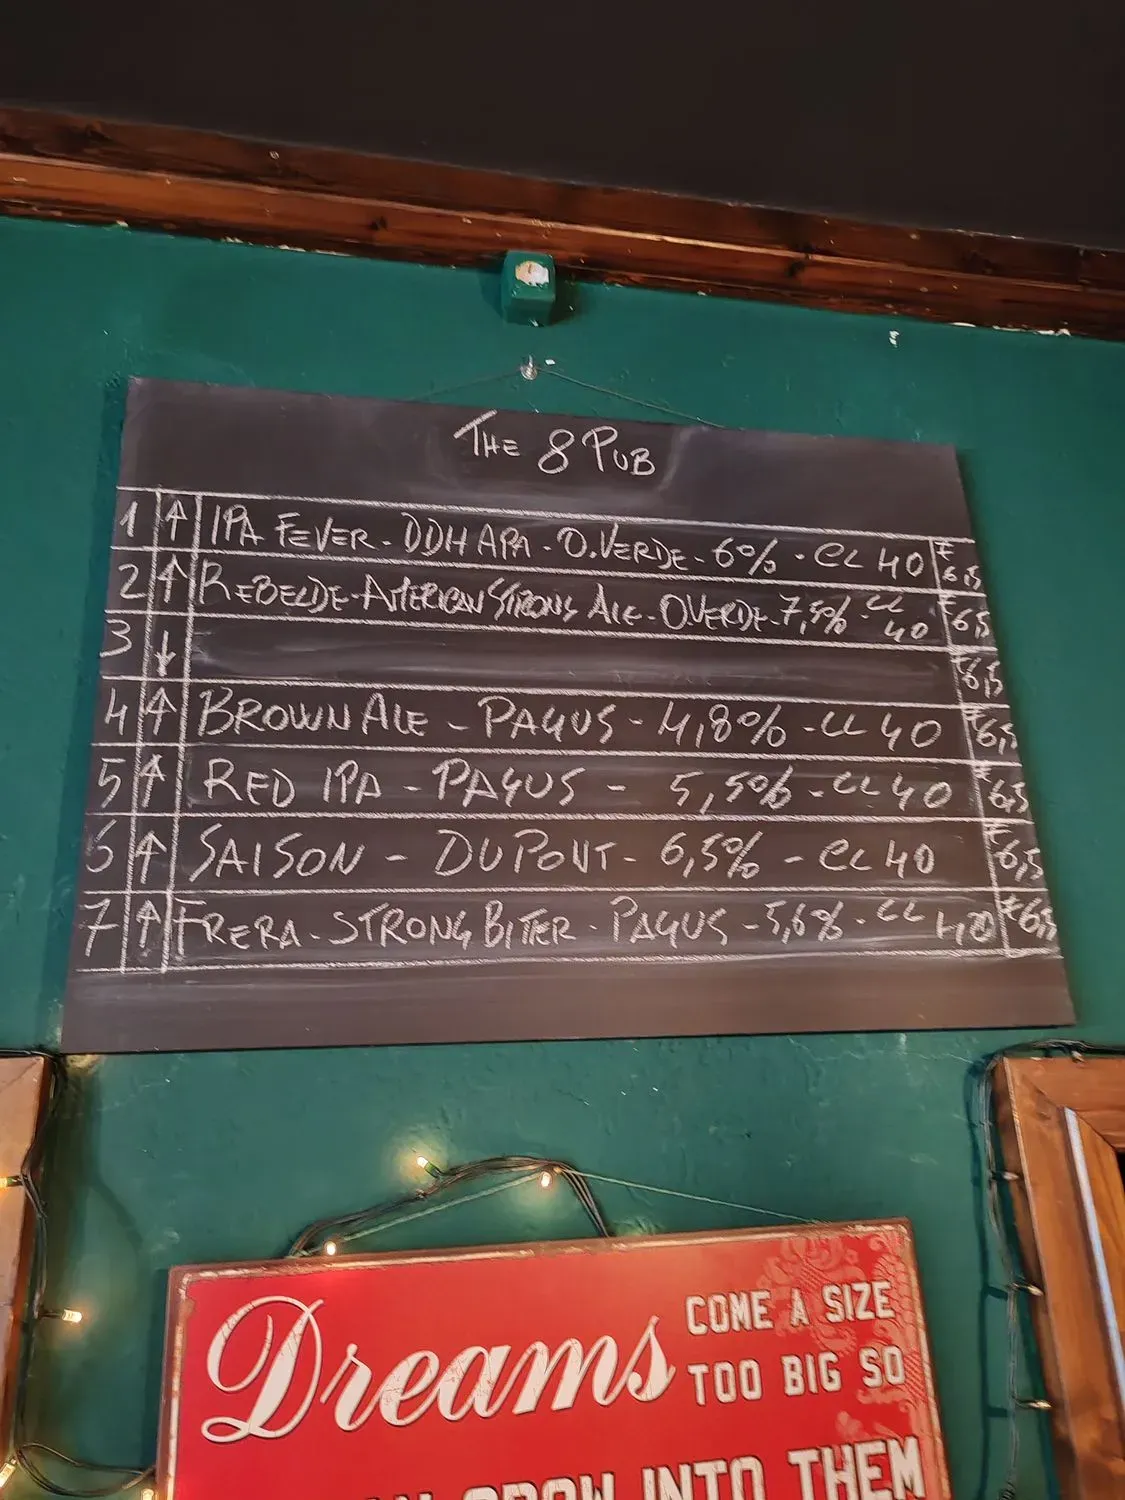 THE 8 PUB
1 ↑ IPA FEVER - DDH APA - O.VERDE - 6% - CL 40 € 6,5
2 ↑ REBELDE - AMERICAN STRONG ALE - O.VERDE - 7,5% - CL 40 € 6,5
3 ↓ € 6,5
4 ↑ BROWN ALE - PAGUS - 4,8% - CL 40 € 6,5
5 ↑ RED IPA - PAGUS - 5,5% - CL 40 € 6,5
6 ↑ SAISON - DUPONT - 6,5% - CL 40 € 6,5
7 ↑ FRERA - STRONG BITER - PAGUS - 5,6% - CL 40 € 6,5
Dreams COME A SIZE
TOO BIG SO
GROW INTO THEM